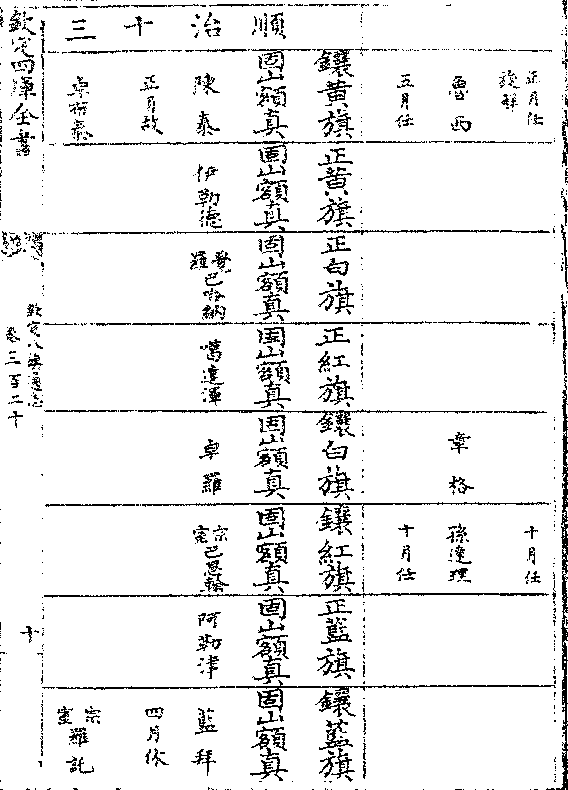 正月任
十月任
魯西
章格
孫達理
五月任
十月任
順治十三
鑲黄旗
正黄旗
正白旗
正紅旗
鑲白旗
鑲紅旗
正藍旗
鑲藍旗
固山額真
固山額真
固山額真
固山額真
固山額真
固山額真
固山額真
固山額真
陳泰
伊勒德
覺羅巴哈納
噶達渾
卓羅
宗室巴思
阿勒津
藍拜
正月故
四月休
卓布泰
宗室羅託
欽定四庫全書
欽定八旗通志
卷三百二十
十